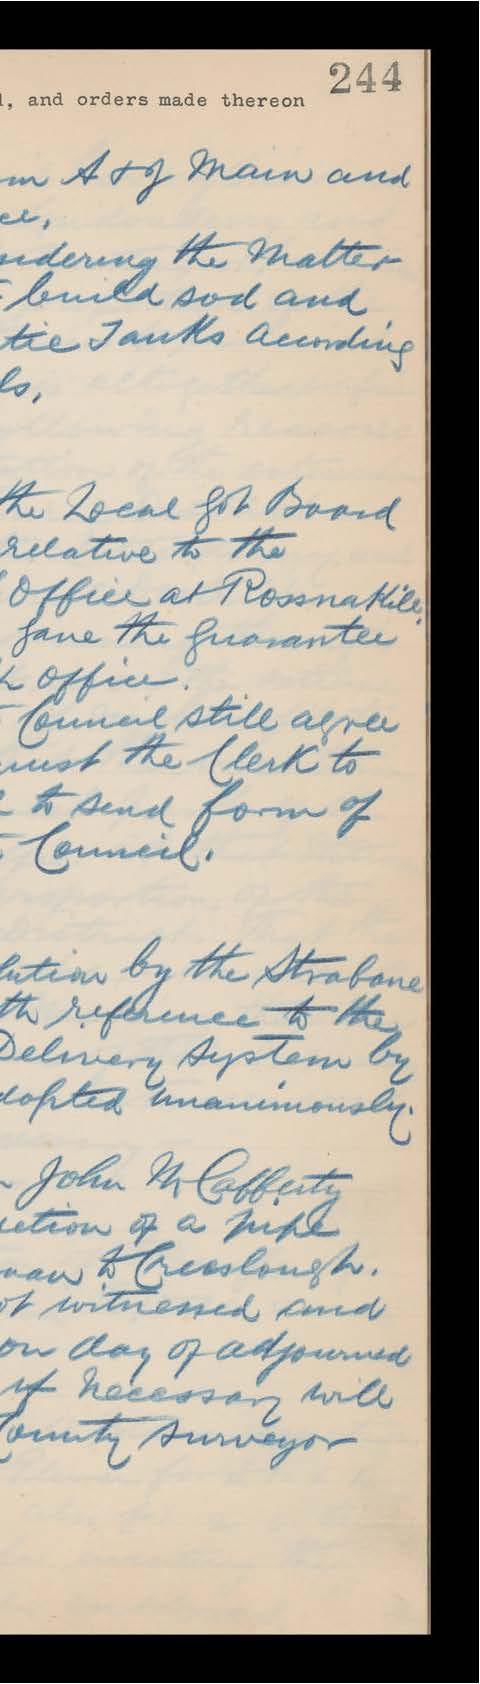 244
, and orders made thereon
m A & J Main and
ce,
sidering the Matter
build sod and
tic Tanks Acording
ls,
the Local Got Board
relative to the
Office at Rossnakille,
gave the Guarantee
h office.
Council still agree
the Clerk to
to send form of
Council.
lution by the Strabane
th reference to the
Delivery System by
dopted unanimously.
John McCafferty
uction of a pipe
to Creeslough.
ot witnessed and
on day of adjourned
if necessary will
County Surveyor